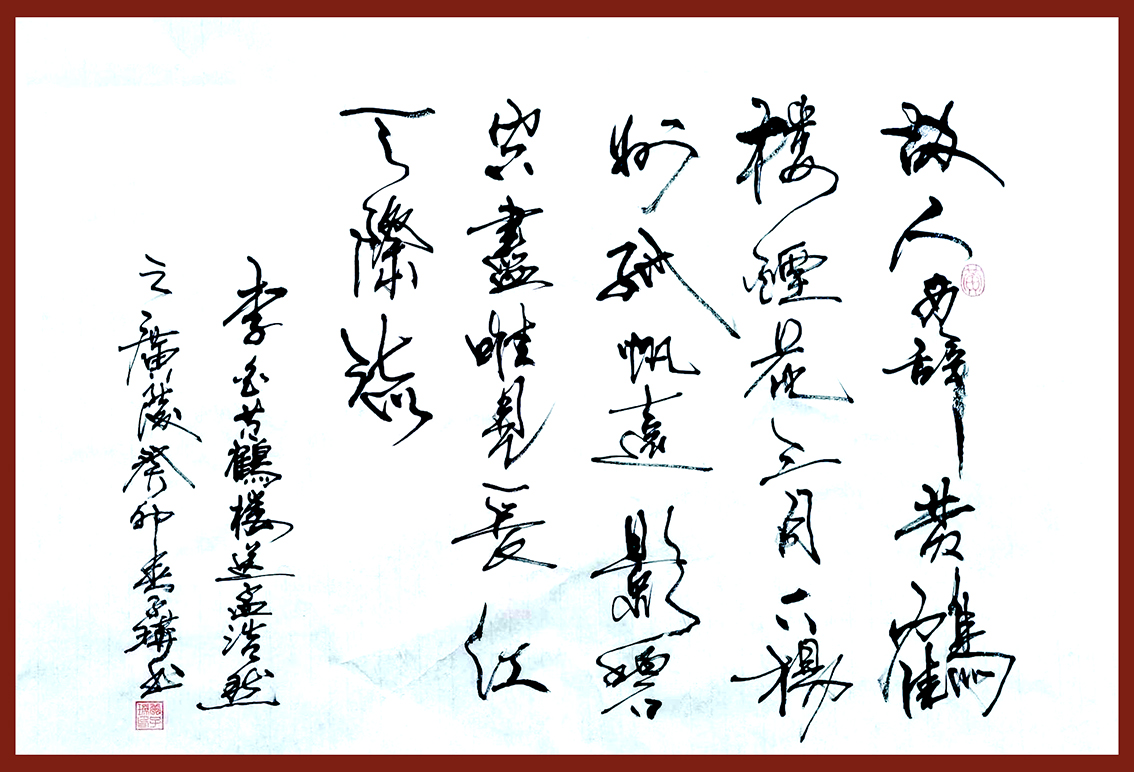 故人西辞黄鶴
楼煙花三月下揚
州孤帆遠影碧
空盡唯見長江
天際流
李白黄鶴楼送孟浩然
之廣陵癸卯子书